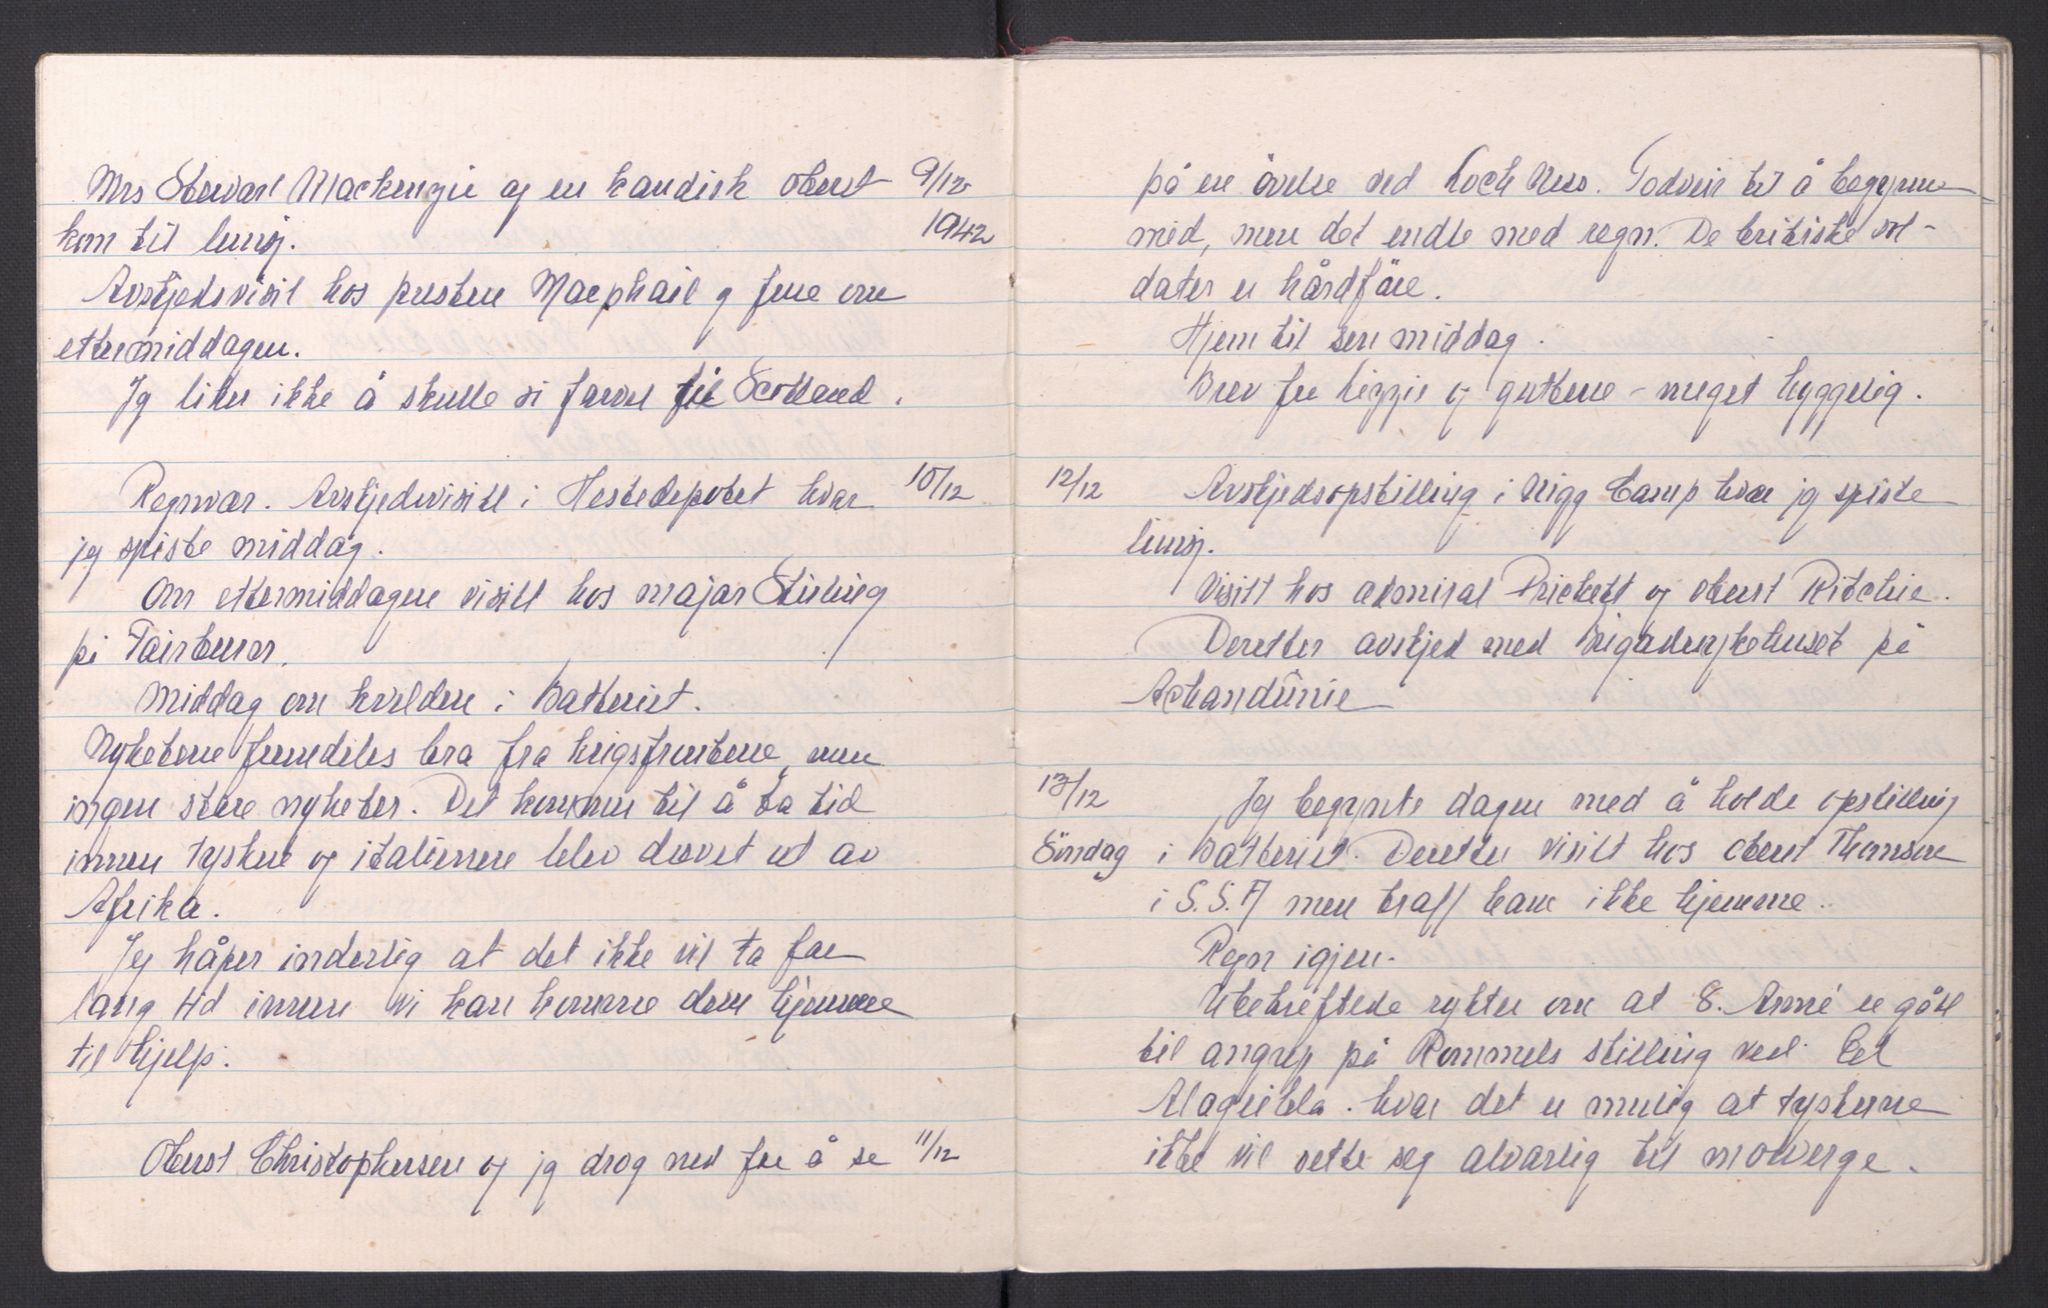 Mrs Stewart Mackenzie og en kandisk oberst 9/12
kom til lunsj. 1942
Avskjedsvisit hos presten Macphail og frue om
ettermiddagen.
Jeg liker ikke å skulle si farvel til Scotland.
Regnvær. Avskjedsvisitt i Hestedepotet hvor 10/12
jeg spiste middag.
Om ettermiddagen visitt hos major Stirling
på Fairburn.
Middag om kvelden i Batteriet.
Nyhetene fremdeles bra fra krigsfrontene, men
ingen store nyheter. Det kommer til å ta tid
innen tyskere og italienere blev drevet ut av
Afrika.
Jeg håper inderlig at det ikke vil ta for
lang tid innen vi kan komme dem hjemme
til hjelp.
Oberst Christophersen og jeg drog ned for å se 11/12
på en øvelse ved Loch Ness. Godveir til å begynne
med, men det endte med regn. De britiske sol-
dater er hårdføre.
Hjem til sen middag.
Brev fra Lizzie og guttene - meget hyggelig.
12/12 Avskjedsopstilling i Nigg Camp hvor jeg spiste
lunsj.
Visitt hos admiral Prickett og oberst Ritchie.
Deretter avskjed med Brigadesykehuset på
Achandunie
13/12 Jeg begynte dagen med å holde opstilling
Söndag i Batteriet. Deretter visitt hos oberst Thomson
i S.S.A men traff ham ikke hjemme.
Regn igjen.
Ubekreftede rykter om at 8. Armé er gått
til angrep på Rommels stilling ved El
Alagheila. hvor det er mulig at tyskerne
ikke vil sette seg alvorlig til motverge.